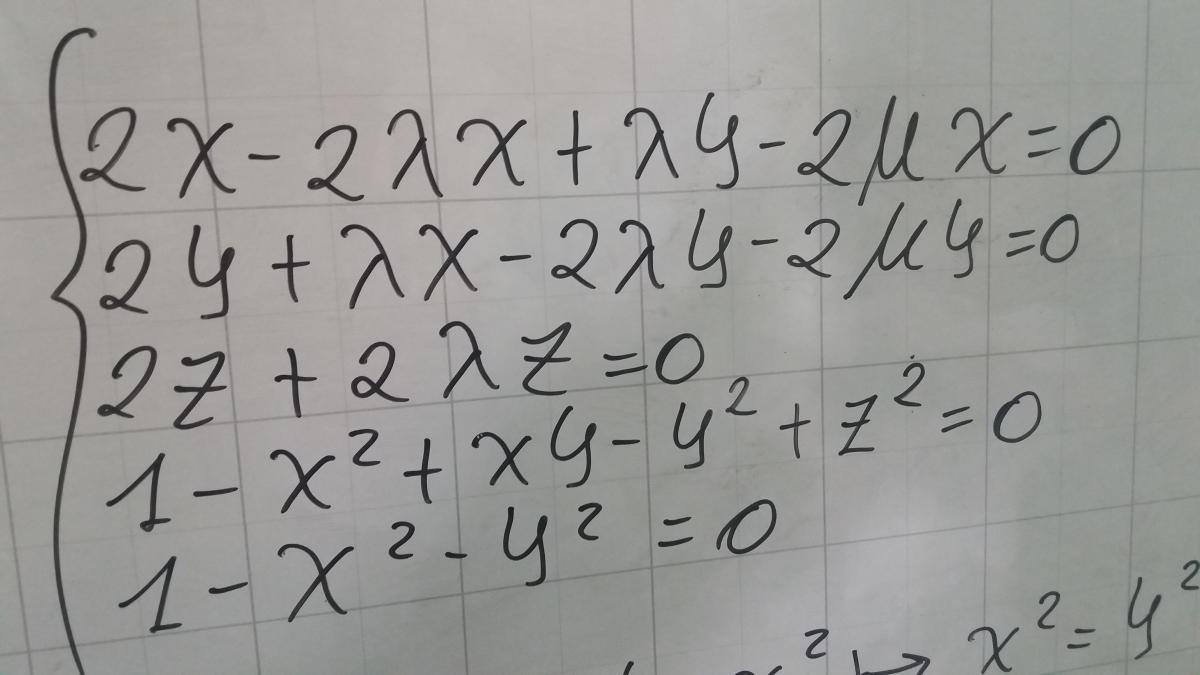 2x - 2λx + λy - 2μx = 0
2y + λx - 2λy - 2μy = 0
2z + 2λz = 0
1 - x² + xy - y² + z² = 0
1 - x² - y² = 0
² ↦ x² = y²